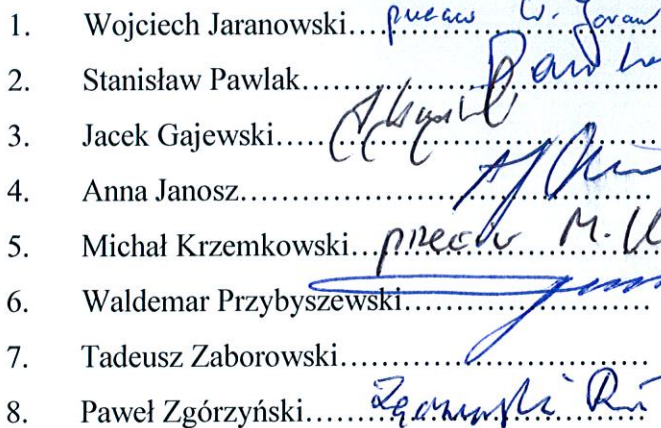 1. Wojciech Jaranowski.... przeciw W. Jaran
2. Stanisław Pawlak....
3. Jacek Gajewski....
4. Anna Janosz....
5. Michał Krzemkowski.... przeciw M. K
6. Waldemar Przybyszewski....
7. Tadeusz Zaborowski....
8. Paweł Zgórzyński....